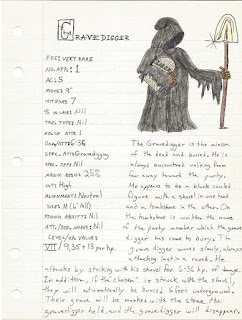 GRAVEDIGGER
FRE: VERY RARE
NO. APP: 1
AC: 5
MOVE: 9"
HIT DICE: 7
% IN LAIR: Nil
TREA. TYPE: Nil
NO. OF ATT: 1
DAM/ATT: 6-36
SPEC. ATT: Gravedigging
SPEC. DEF: Nil
MAGIC RESIS: 25%
INT: High
ALIGNMENT: Neutral
SIZE: M (6' tall)
PSIONIC ABILITY: Nil
ATT./DEF. MODES: Nil
LEVEL/XP. VALUE:
VII / 935 + 13 per hp.
The Gravedigger is the minion
of the dead and buried. He is
always encountered walking from
far away toward the party.
He appears to be a black cowled
figure with a shovel in one hand
and a tombstone in the other. On
the tombstone is written the name
of the party member which the grave
digger has come to bury. The
grave digger moves slowly, always
attacking last in a round. He
attacks by striking with his shovel for 6-36 hp. of damage.
In addition, if the "chosen" is struck with the shovel,
they will automatically be buried 6 feet underground.
Their grave will be marked with the stone the
gravedigger held, and the gravedigger will disappear.